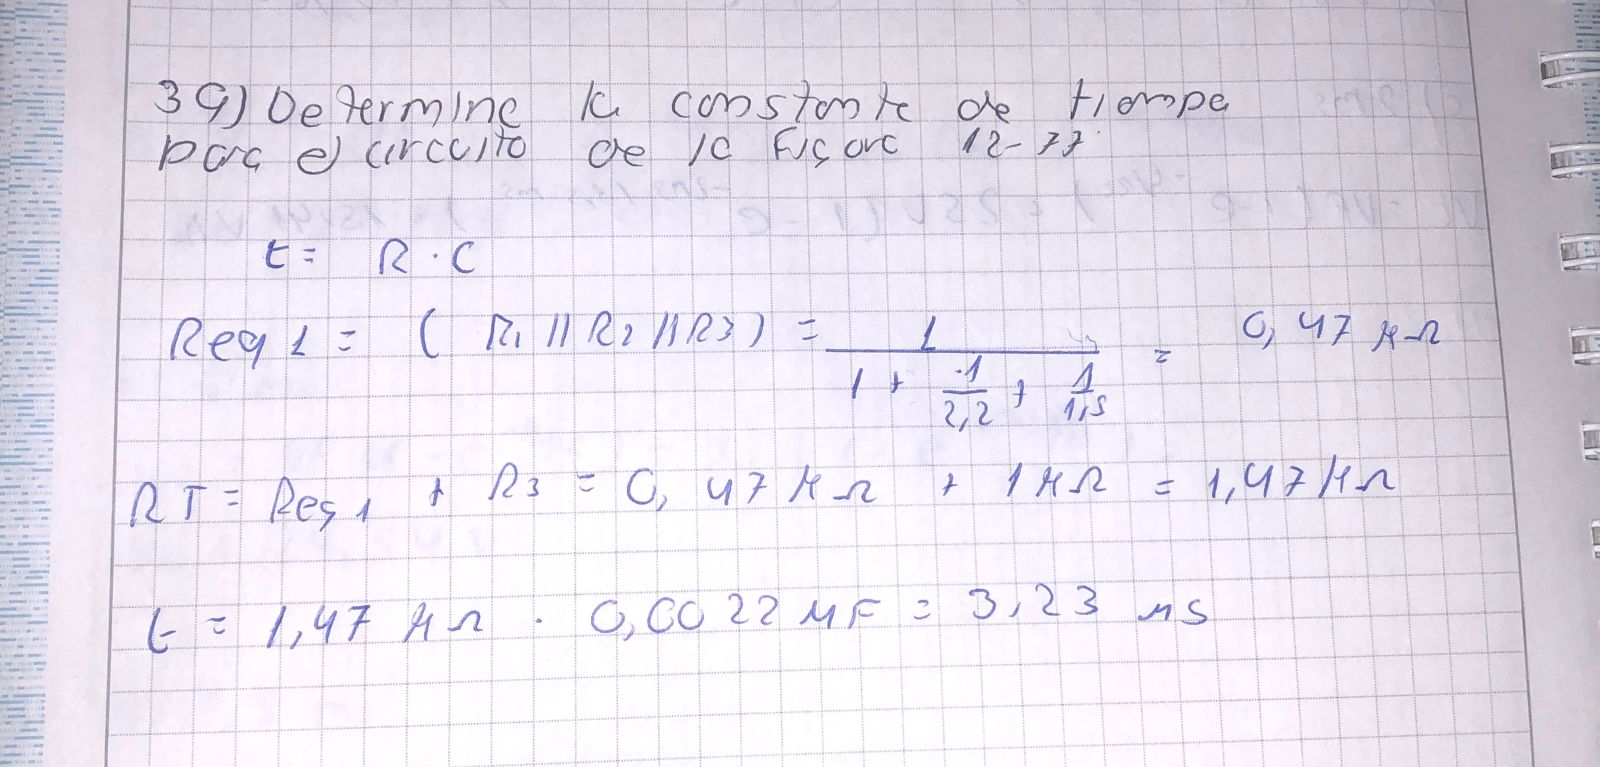 39) Determine la constante de tiempo
para el circuito de la Figura 12-77
t = R · C
Req 1 = ( R1 || R2 || R3 ) = 1 / (1 + 1/2,2 + 1/1,5) = 0,47 MΩ
RT = Req 1 + R3 = 0,47 MΩ + 1 MΩ = 1,47 MΩ
t = 1,47 MΩ · 0,0022 MF = 3,23 ms